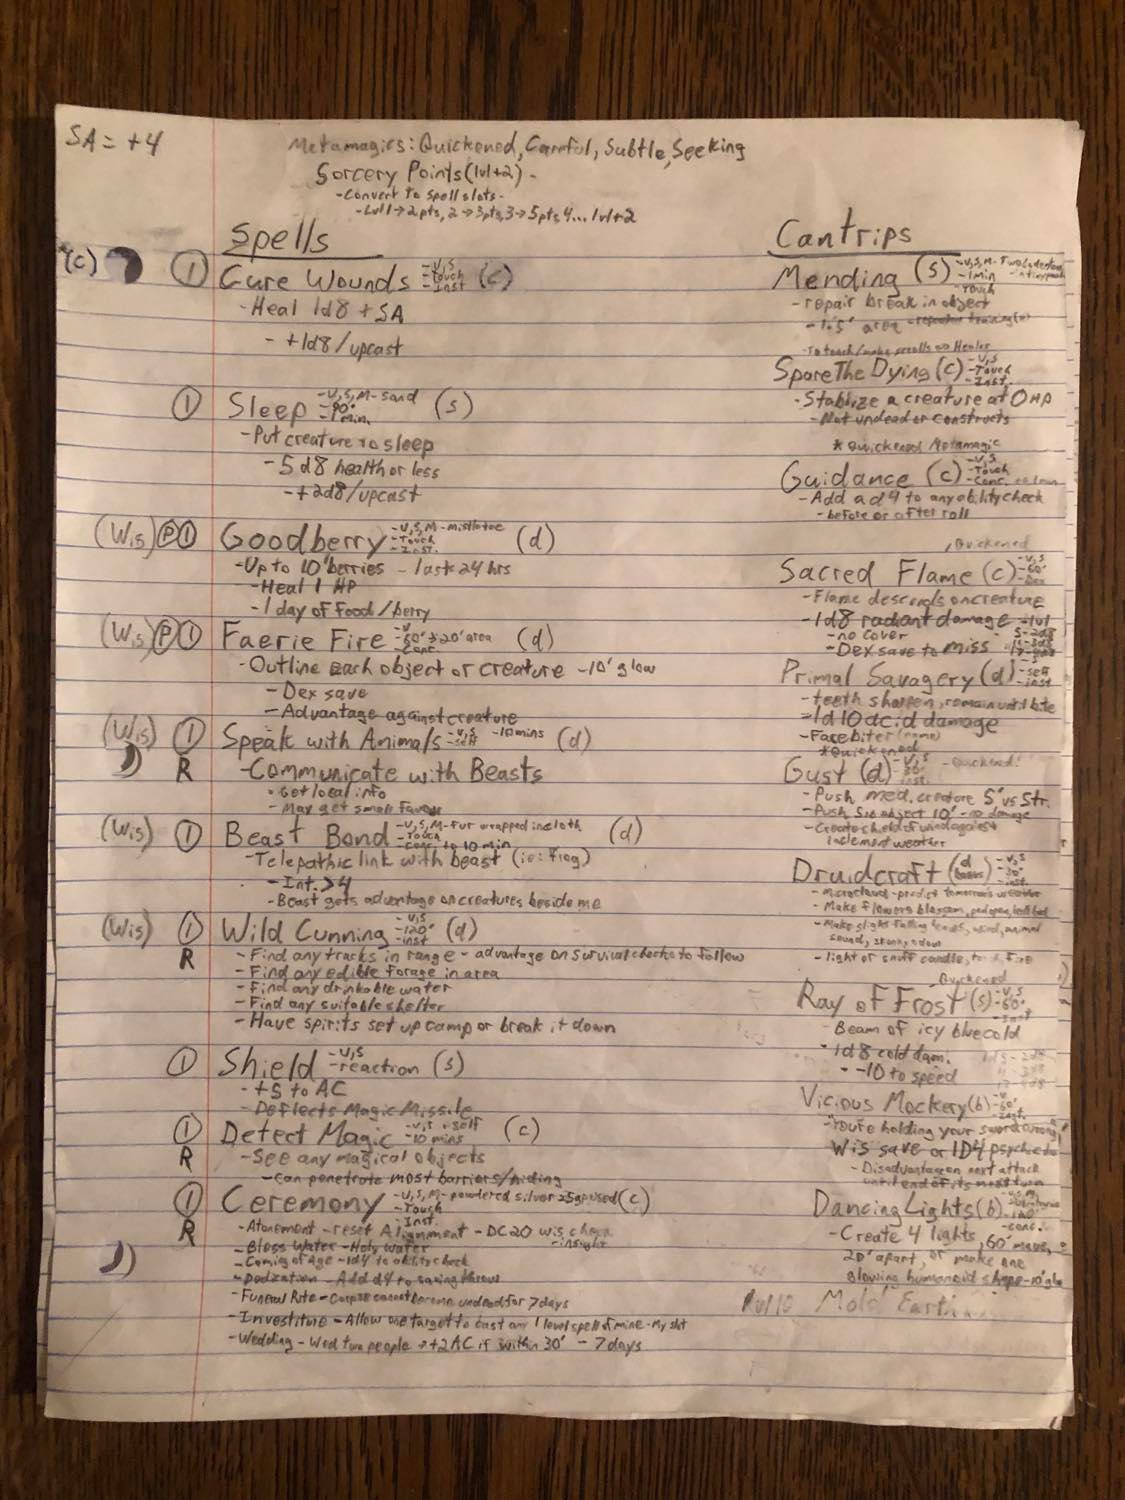 SA = +4
Metamagics: Quickened, Careful, Subtle, Seeking
Sorcery Points (lvl+2) -
- Convert to spell slots -
- Lvl 1 → 2pts, 2 → 3pts, 3 → 5pts, 4... lvl+2
Spells
(c) ① Cure Wounds (c)
- V, S
- Touch
- Inst
- Heal 1d8 + SA
- +1d8/upcast
① Sleep (s)
- V, S, M - sand
- 90'
- 1 min.
- Put creature to sleep
- 5d8 health or less
- +2d8/upcast
(Wis) Ⓟ ① Goodberry (d)
- V, S, M - mistletoe
- Touch
- Inst.
- Up to 10 berries - last 24 hrs
- Heal 1 HP
- 1 day of food/berry
(Wis) Ⓟ ① Faerie Fire (d)
- V
- 60' 20' area
- Conc
- Outline each object or creature - 10' glow
- Dex save
- Advantage against creature
(Wis) ① Speak with Animals (d)
- V, S - 10 mins
- self
R - Communicate with Beasts
- Get local info
- May get small favour
(Wis) ① Beast Bond (d)
- V, S, M - Fur wrapped in cloth
- Touch
- Conc to 10 min
- Telepathic link with beast (ie: Frog)
- Int. > 4
- Beast gets advantage on creatures beside me
(Wis) ① Wild Cunning (d)
- V, S
- 120'
- inst
R - Find any tracks in range - advantage on Survival checks to follow
- Find any edible forage in area
- Find any drinkable water
- Find any suitable shelter
- Have spirits set up camp or break it down
① Shield (s)
- V, S
- reaction
- +5 to AC
- Deflects Magic Missile
① Detect Magic (c)
- V, S - self
- 10 mins
R - See any magical objects
- Can penetrate most barriers/hiding
① Ceremony (c)
- V, S, M - powdered silver 25gp used
- Touch
- Inst.
R - Atonement - reset Alignment - DC20 wis check
- insight
- Bless Water - Holy Water
- Coming of Age - 1d4 to ability check
- Dedication - Add d4 to saving throws
- Funeral Rite - Corpse cannot become undead for 7 days
- Investiture - Allow one target to cast any 1 level spell of mine - my slot
- Wedding - Wed two people → +2 AC if within 30' - 7 days
Cantrips
Mending (s)
- V, S, M - Two Lodestones
- 1 min
- Touch
- repair break in object
- 1.5' area
- To teach/make scrolls
Spare The Dying (c)
- V, S
- Touch
- Inst.
- Stablize a creature at 0 HP
- Not undead or constructs
* Quickened Metamagic
Guidance (c)
- V, S
- Touch
- Conc. to 1 min
- Add a d4 to any ability check
- before or after roll
, Quickened
Sacred Flame (c)
- V, S
- 60'
- Dex
- Flame descends on creature
- 1d8 radiant damage - lvl
- no cover 5 - 2d8
- Dex save to miss
Primal Savagery (d)
- S
- self
- inst
- teeth sharpen, remain until bite
- 1d10 acid damage
- Facebiter (name)
* Quickened
Gust (d)
- V, S
- 30'
- inst.
- Quickened!
- Push med. creature 5' vs Str.
- Push 5lb object 10' - no damage
- Create shield of wind against
inclement weather
Druidcraft (d
- V, S
- 30'
- inst.
- predict tomorrow's weather
- Make flowers blossom,
- Make slight falling leaves, wind, animal
sound, skunk odour
- light or snuff candle,
Quickened
Ray of Frost (s)
- V, S
- 60'
- Beam of icy blue cold
- 1d8 cold dam.
- -10 to speed
Vicious Mockery (b)
- V
- 60'
- Inst.
- "You're holding your sword wrong"
Wis save or 1D4 psychic
- Disadvantage on next attack
until end of its next turn
Dancing Lights (b)
- conc.
- Create 4 lights, 60' move,
20' apart, or make one
glowing humanoid shape - 10' glo
lvl 10 Mold Earth